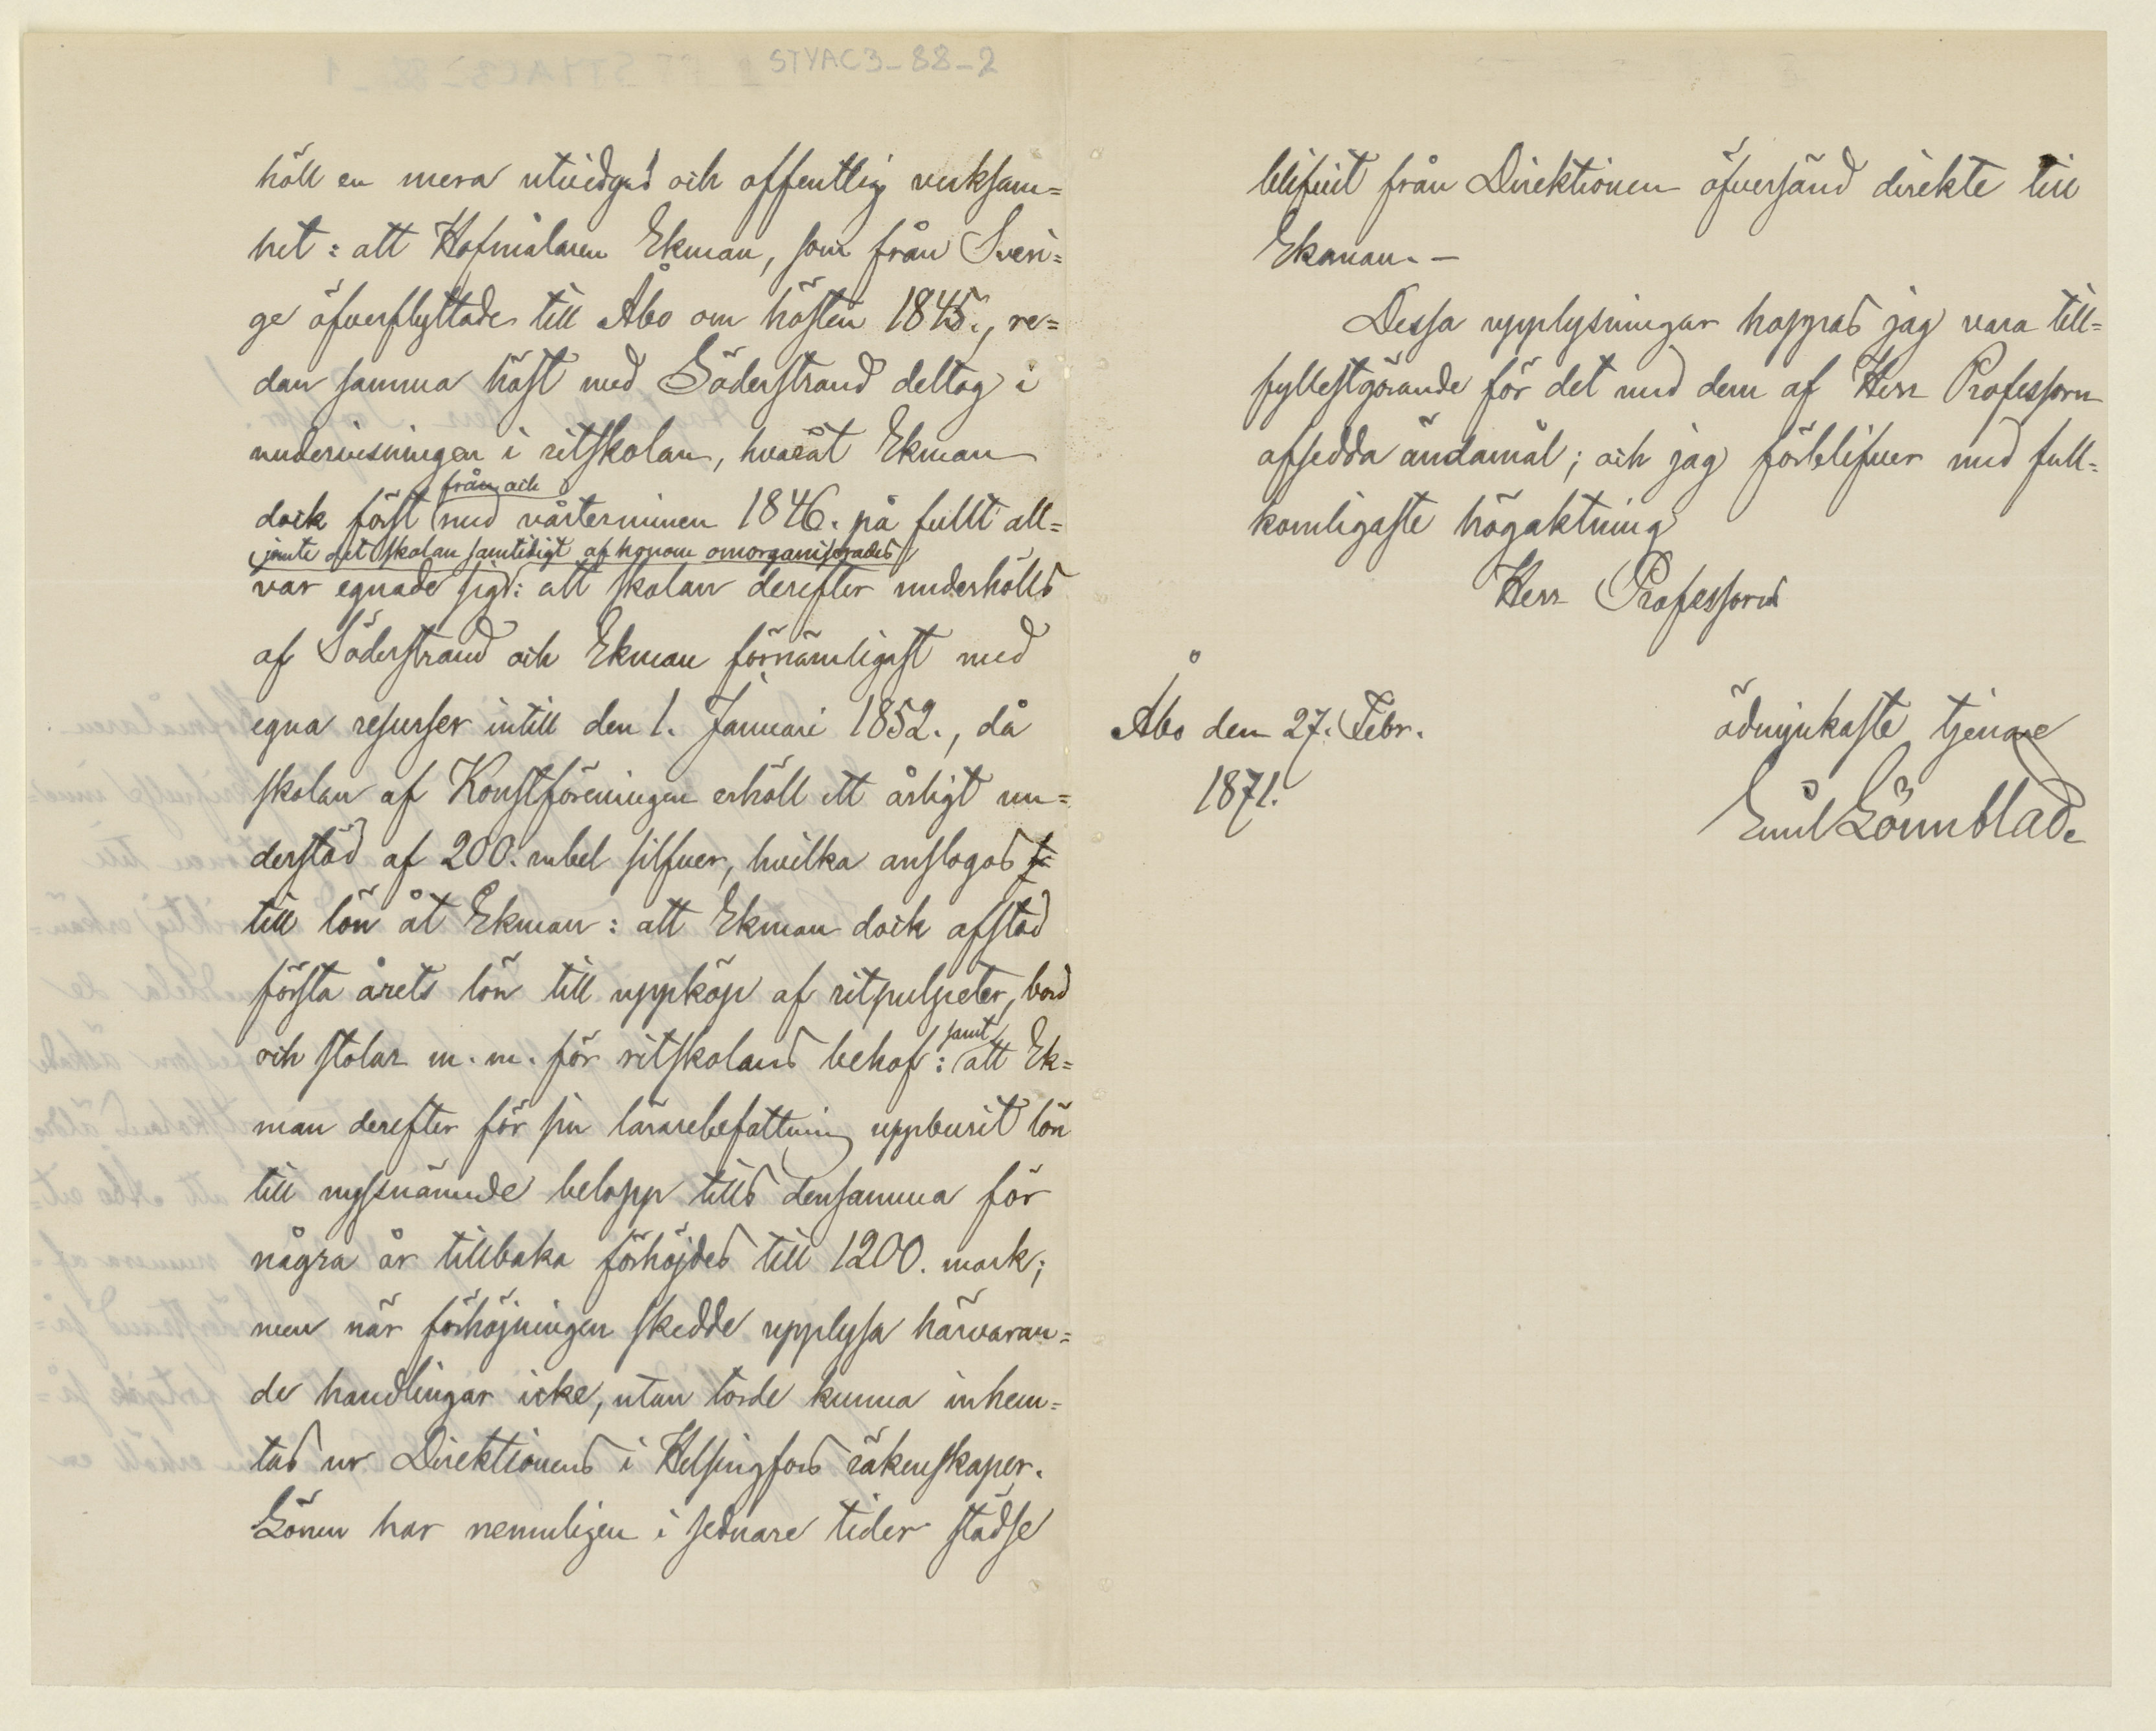 STYAC3-88-2
höll en mera utvidgad och offentlig verksam=
het: att Hofmålaren Ekman, som från Sveri=
ge öfverflyttade till Åbo om hösten 1845., re=
dan samma höst med Söderstrand deltog i
undervisningen i ritskolan, hvaråt Ekman
från och
dock först med vårterminen 1846. på fullt all=
jemte det skolan samtidigt af honom omorganiserades
var egnade sig: att skolan derefter underhölls
af Söderstrand och Ekman förnämligast med
egna resurser intill den 1. Januari 1852., då
skolan af Konstföreningen erhöll ett årligt un=
derstöd af 200. rubel silfver, hvilka anslogos
till lön åt Ekman: att Ekman dock afstod
första årets lön till uppköp af ritpulpeter, bord
och stolar m. m. för ritskolans behof: samt att Ek=
man derefter för sin lärarebefattning uppburit lön
till nyssnämnde belopp tills densamma för
några år tillbaka förhöjdes till 1200. mark;
men när förhöjningen skedde upplysa härvaran=
de handlingar icke, utan torde kunna inhem=
tas ur Direktionens i Helsingfors räkenskaper.
Lönen har nemnligen i sednare tider städse
blifvit från Direktionen öfversänd direkte till
Ekman. -
Dessa upplysningar hoppas jag vara till=
fyllestgörande för det med dem af Herr Professorn
afsedda ändamål; och jag förblifver med full=
komligaste högaktning
Herr Professorns
Åbo den 27. Febr.
1871.
ödmjukaste tjenare
Emil Lönnblad.